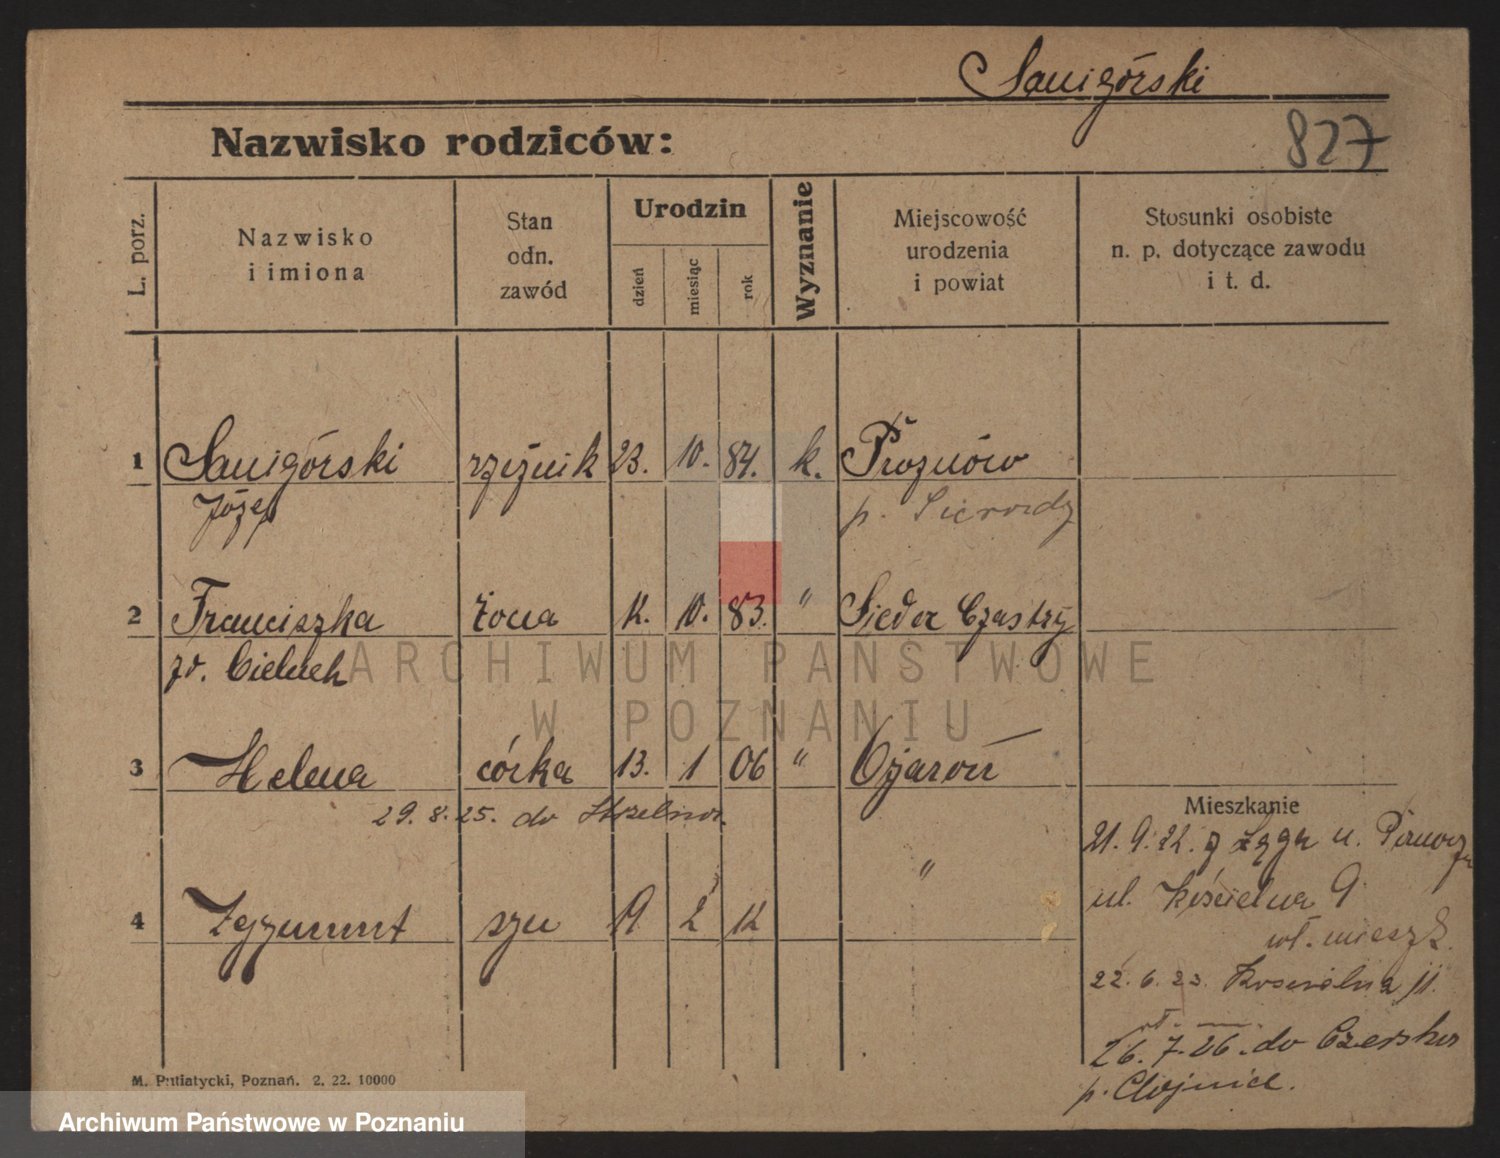 Sanigórski
827
Nazwisko rodziców:
L. porz.
Nazwisko
i imiona
Stan
odn.
zawód
Urodzin
dzień
miesiąc
rok
Wyznanie
Miejscowość
urodzenia
i powiat
Stosunki osobiste
n. p. dotyczące zawodu
i t. d.
1 Sanigórski rzeźnik 23. 10. 84. k. Prusznów
Józef p. Sieradz
2 Franciszka żona 12. 10. 83. "
zd. Cieluch
3 Helena córka 13. 1 06 " Ożarów
29. 8. 25. do Strzelna
Mieszkanie
21. 9. 22. z
ul. Kościelna 9
wł. mieszk.
4 Zygmunt syn 19 2 12 "
22. 6. 23. Kościelna 11.
26. 7. 26. do Czerska
p. Chojnice.
M. Putiatycki, Poznań. 2. 22. 10000
ARCHIWUM PAŃSTWOWE
W POZNANIU
Archiwum Państwowe w Poznaniu